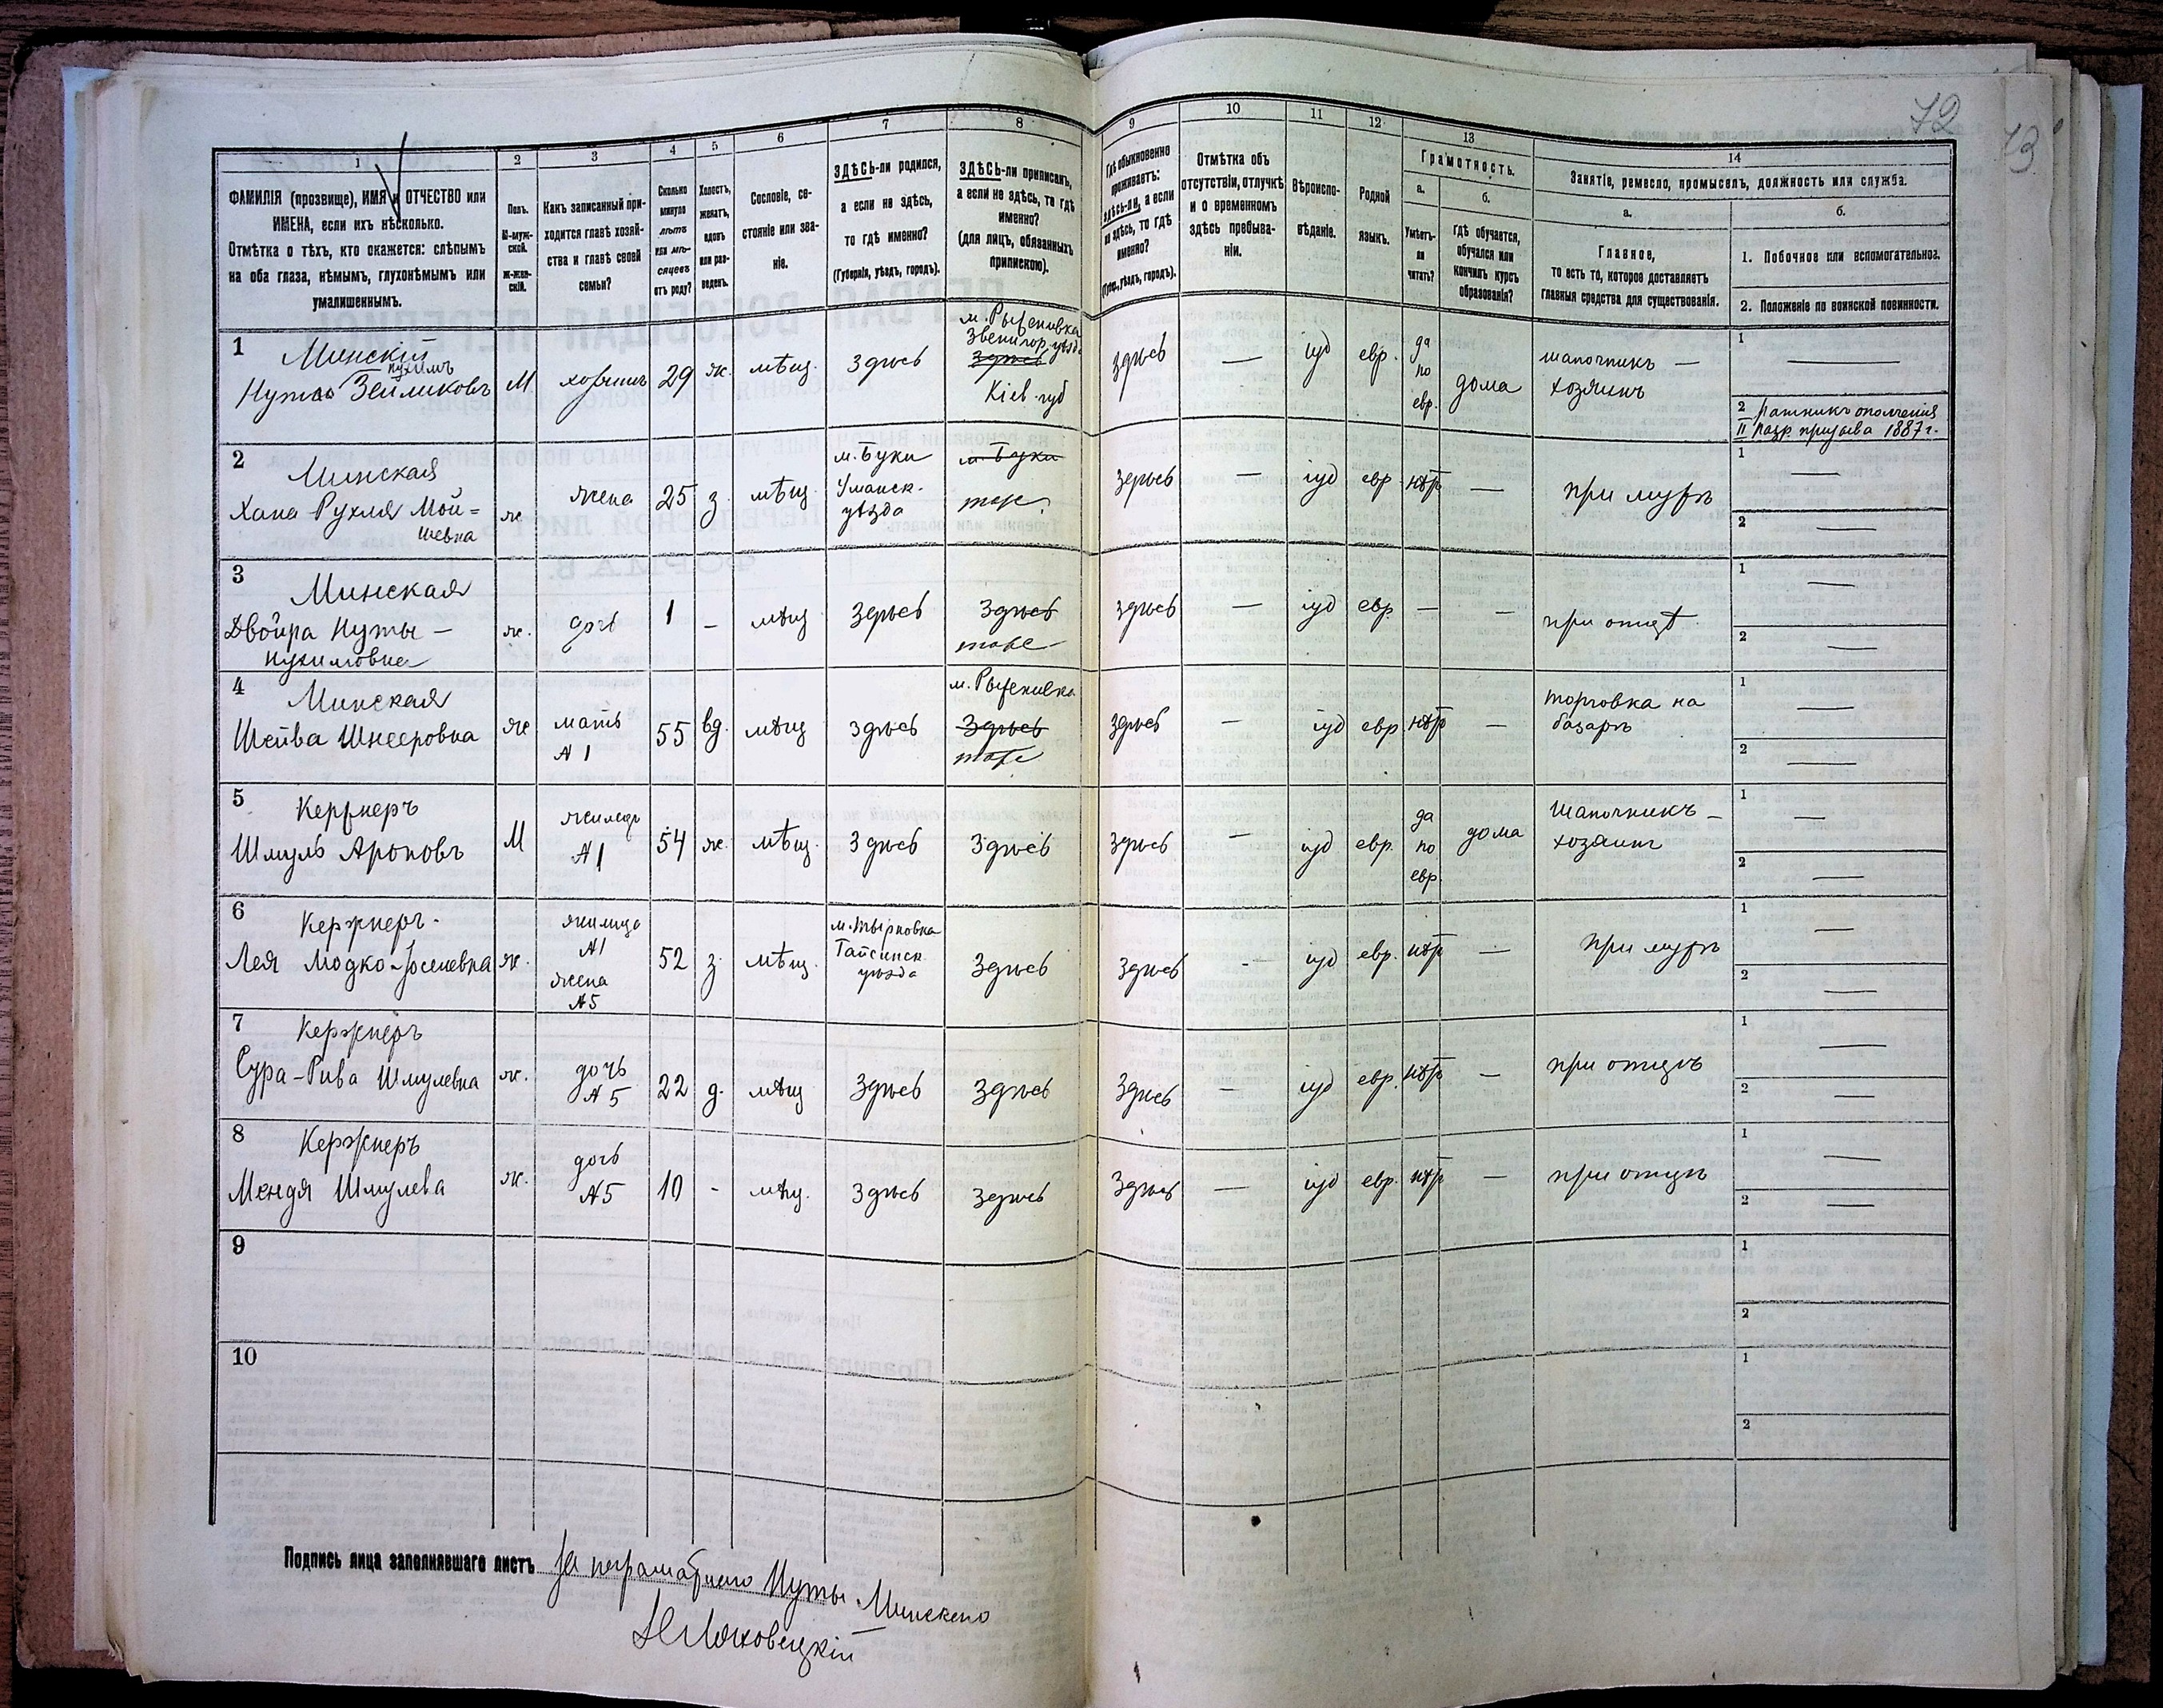 72
73
1
2
3
4
5
6
7
8
9
10
11
12
13
14
ФАМИЛІЯ (прозвище), ИМЯ и ОТЧЕСТВО или
ИМЕНА, если ихъ нѣсколько.
Отмѣтка о тѣхъ, кто окажется: слѣпымъ
на оба глаза, нѣмымъ, глухонѣмымъ или
умалишеннымъ.
Полъ.
М-муж-
ской.
Ж-жен-
скій.
Какъ записанный при-
ходится главѣ хозяй-
ства и главѣ своей
семьи?
Сколько
минуло
лѣтъ
или мѣ-
сяцевъ
отъ роду?
Холостъ,
женатъ,
вдовъ
или раз-
веденъ.
Сословіе, со-
стояніе или зва-
ніе.
ЗДѢСЬ-ли родился,
а если не здѣсь,
то гдѣ именно?
(Губернія, уѣздъ, городъ).
ЗДѢСЬ-ли приписанъ,
а если не здѣсь, то гдѣ
именно?
(для лицъ, обязанныхъ
припискою).
Гдѣ обыкновенно
проживаетъ:
здѣсь-ли, а если
не здѣсь, то гдѣ
именно?
(Губ., уѣздъ, городъ).
Отмѣтка объ
отсутствіи, отлучкѣ
и о временномъ
здѣсь пребыва-
ніи.
Вѣроиспо-
вѣданіе.
Родной
языкъ.
Грамотность.
а.
Умѣетъ-
ли
читать?
б.
гдѣ обучается,
обучался или
кончилъ курсъ
образованія?
Занятіе, ремесло, промыселъ, должность или служба.
а.
Главное,
то есть то, которое доставляетъ
главныя средства для существованія.
б.
1. Побочное или вспомогательное.
2. Положеніе по воинской повинности.
1 Минскій
Нухимъ
Нута Зейликовъ
М
хозяинъ
29
ж.
мѣщ.
здѣсь
м. Рыжановка
Звенигор. уѣзда
здѣсь
Кіев. губ
здѣсь
—
іуд
евр.
да
по
евр.
дома
шапочникъ —
хозяинъ
1 —
2 Ратникъ ополченія
II разр. призыва 1887 г.
2 Минская
Хана Рухля Мой=
шевна
ж
жена
25
з.
мѣщ
м. Буки
Уманск.
уѣзда
м. Буки
тоже
здѣсь
—
іуд
евр
нѣтъ
—
при мужѣ
1 —
2 —
3 Минская
Двойра Нуты —
Нухимовна
ж.
дочь
1
–
мѣщ
здѣсь
здѣсь
тоже
здѣсь
—
іуд
евр.
—
—
при отцѣ
1 —
2 —
4 Минская
Шейва Шнееровна
ж
мать
№ 1
55
вд.
мѣщ
здѣсь
м. Рыжановка
здѣсь
тоже
здѣсь
—
іуд
евр.
нѣтъ
—
торговка на
базарѣ
1 —
2 —
5 Кержнеръ
Шмуль Ароновъ
М
жилецъ
№ 1
54
ж.
мѣщ.
здѣсь
здѣсь
здѣсь
—
іуд
евр.
да
по
евр.
дома
шапочникъ —
хозяинъ
1 —
2 —
6 Кержнеръ.
Лея Модко-Іоселевна
ж.
жилица
№ 1
жена
№ 5
52
з.
мѣщ.
м. Тырновка
Гайсинск
уѣзда
здѣсь
здѣсь
-
іуд
евр.
нѣтъ
—
при мужѣ
1 —
2 —
7 Кержнеръ
Сура-Рива Шмулевна
ж.
дочь
№ 5
22
д.
мѣщ
здѣсь
здѣсь
здѣсь
—
іуд
евр.
нѣтъ
—
при отцѣ
1 —
2 —
8 Кержнеръ
Мендя Шмулева
ж.
дочь
№ 5
10
-
мѣщ.
здѣсь
здѣсь
здѣсь
—
іуд
евр.
нѣтъ
—
при отцѣ
1 —
2 —
9
1
2
10
1
2
Подпись лица заполнявшаго листъ За неграмотнаго Нуты Минскаго